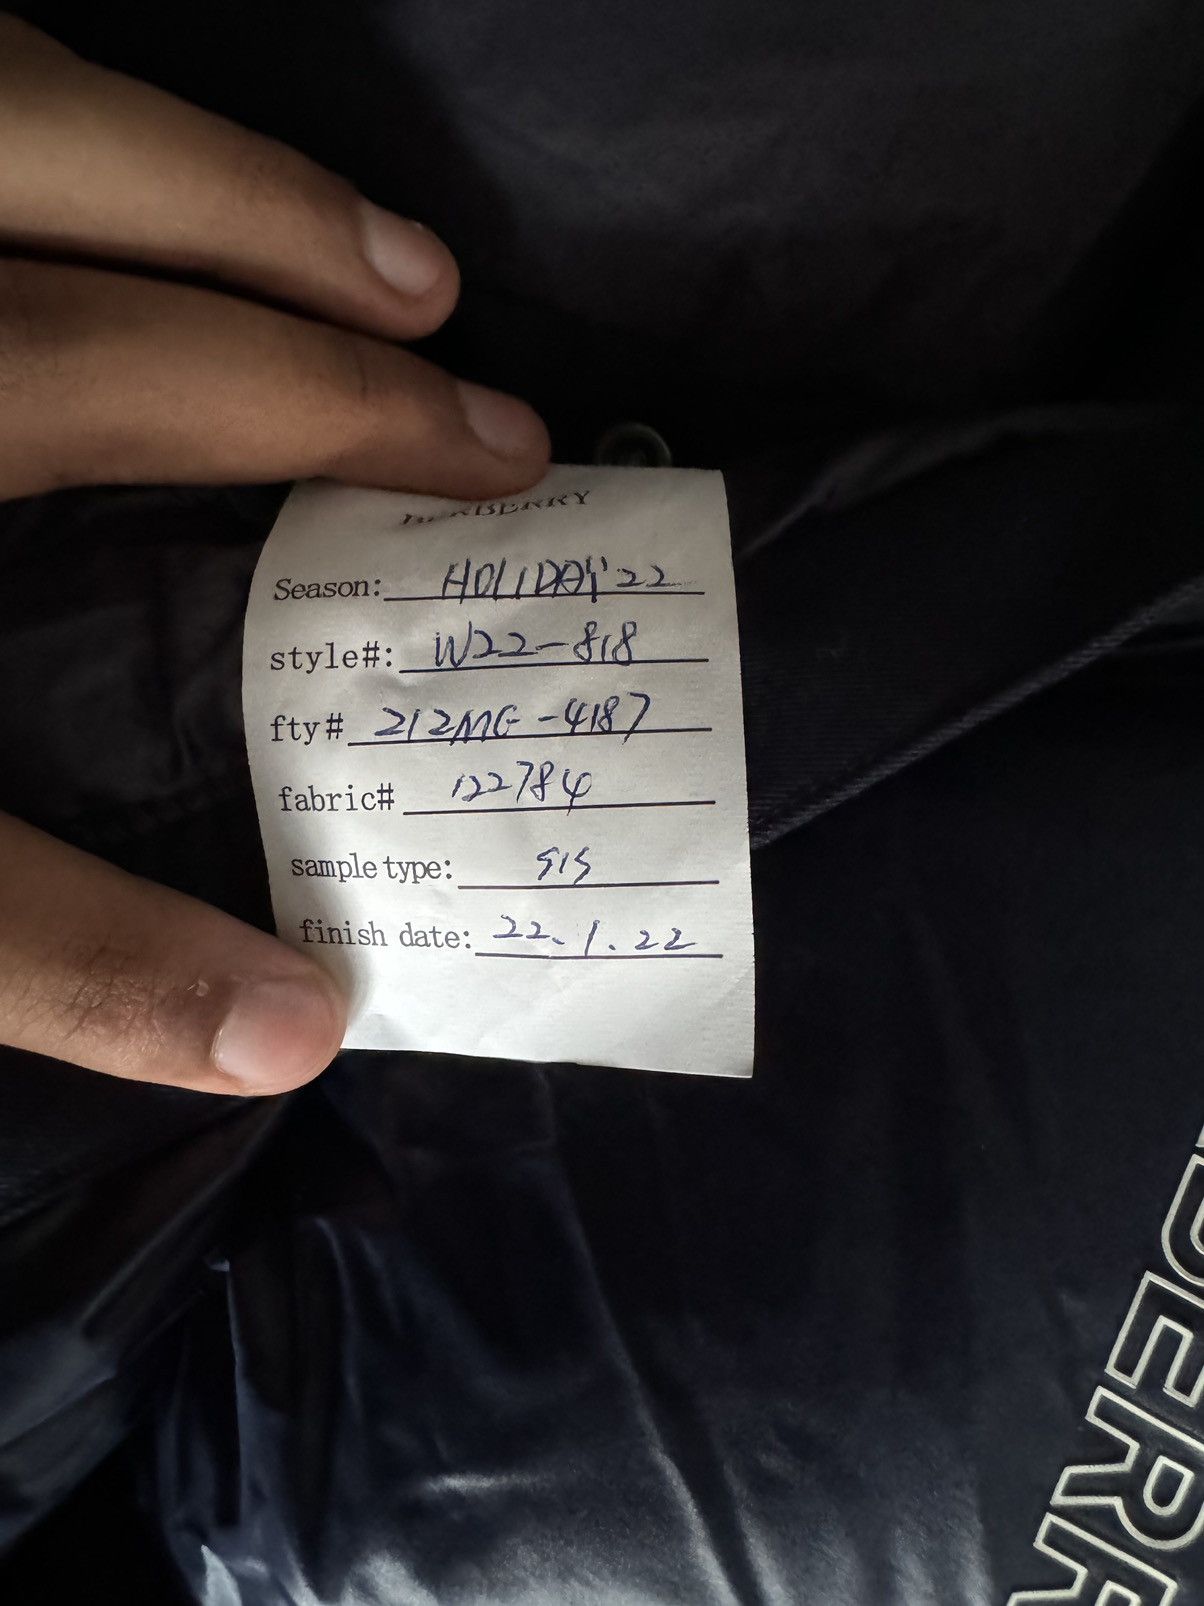 BURBERRY
Season: HOLIDAY'22
style#: W22-818
fty# 212MG-4187
fabric# 122784
sample type: SIS
finish date: 22.1.22
BERR